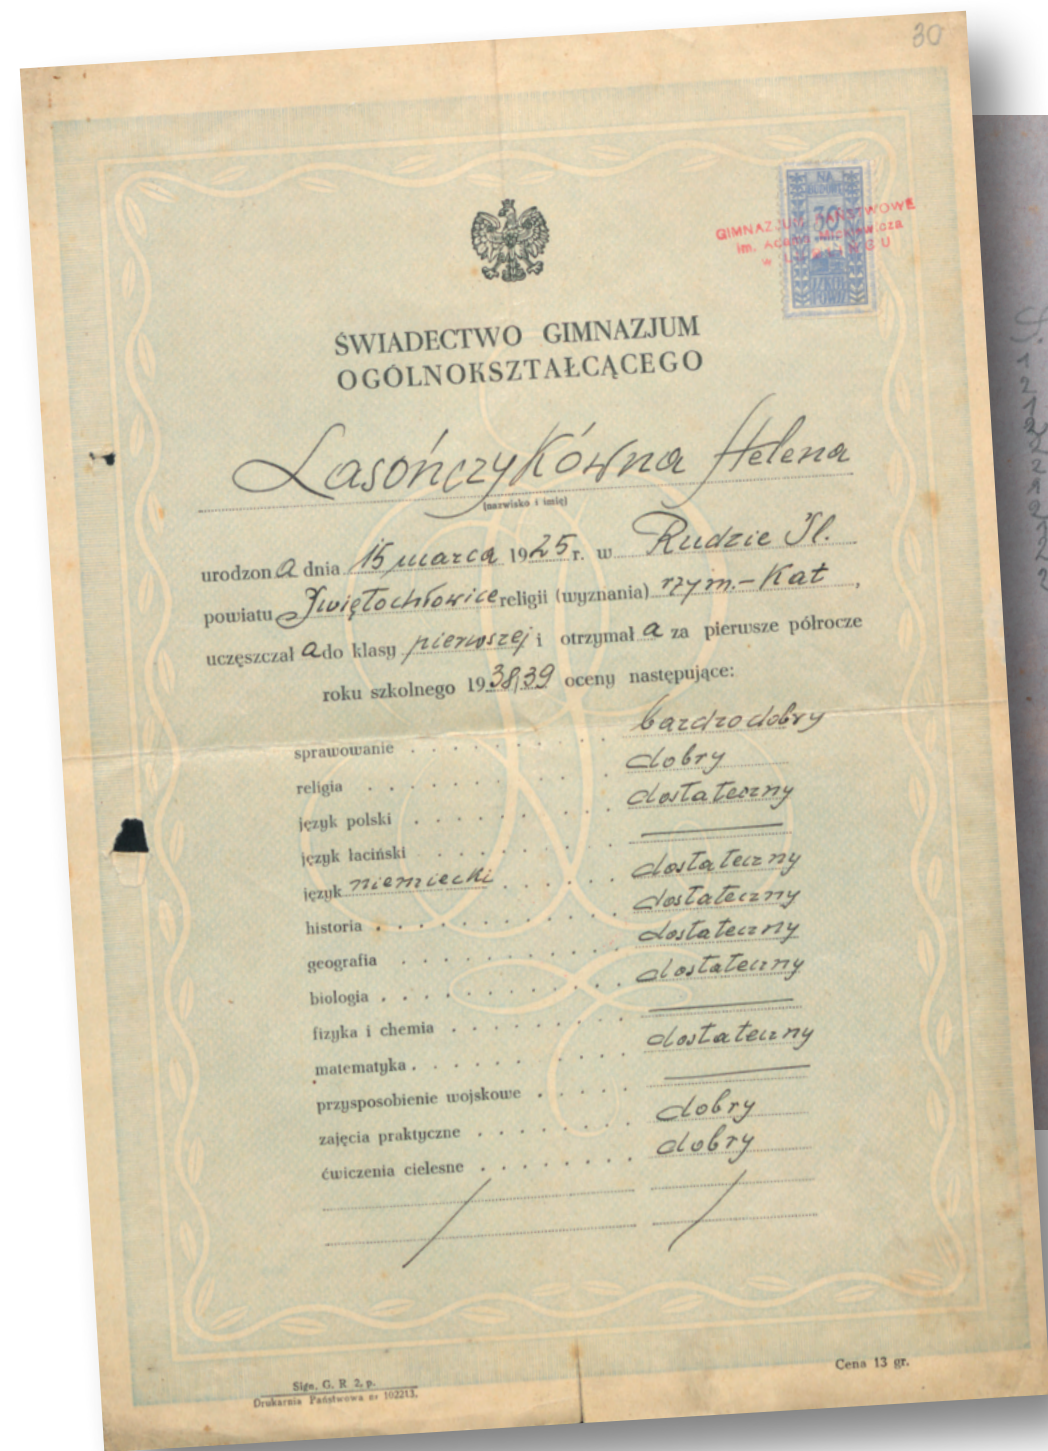 30
NA
30
GIMNAZJUM PAŃSTWOWE
im. Adama Mickiewicza
w
ŚWIADECTWO GIMNAZJUM
OGÓLNOKSZTAŁCĄCEGO
Lasończykówna Helena
(nazwisko i imię)
urodzona dnia 15 marca 1925 r. w Rudzie Śl.
powiatu Świętochłowice religii (wyznania) rzym.-Kat,
uczęszczała do klasy pierwszej i otrzymała za pierwsze półrocze
roku szkolnego 1938/39 oceny następujące:
sprawowanie bardzo dobry
religia dobry
język polski dostateczny
język łaciński
język niemiecki dostateczny
historia dostateczny
geografia dostateczny
biologia dostateczny
fizyka i chemia
matematyka dostateczny
przysposobienie wojskowe
zajęcia praktyczne dobry
ćwiczenia cielesne dobry
Sign. G. R. 2. p.
Drukarnia Państwowa nr 102213.
Cena 13 gr.